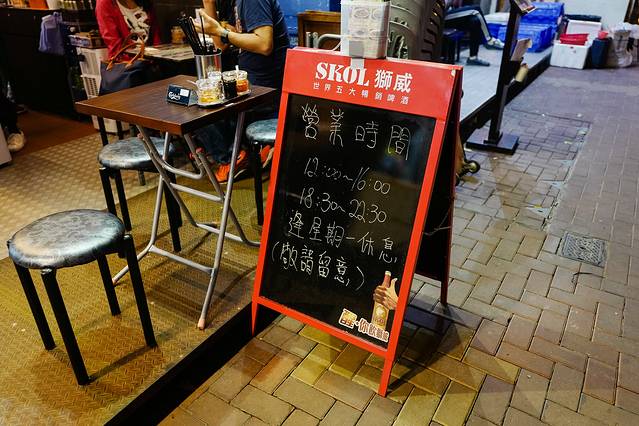 SKOL 獅威
世界五大暢銷啤酒
營業時間
12:00~16:00
18:30~22:30
逢星期一休息
(敬請留意)